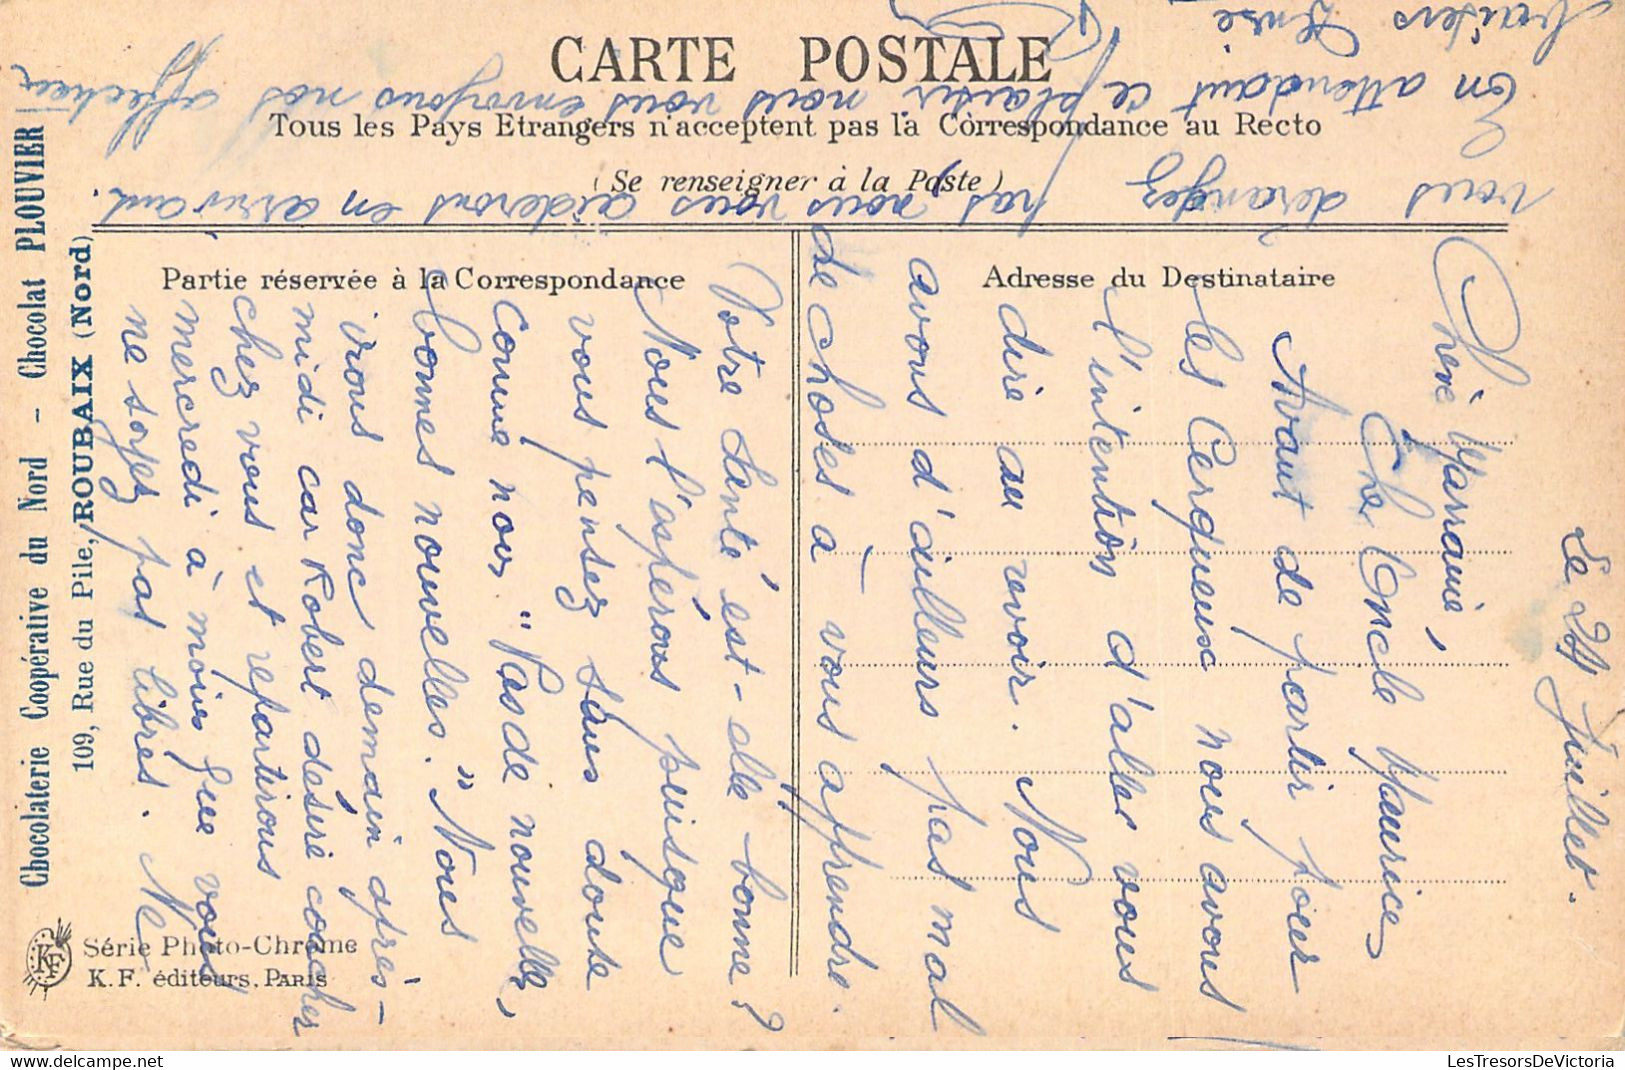 CARTE POSTALE
Tous les Pays Etrangers n'acceptent pas la Correspondance au Recto
(Se renseigner à la Poste)
Partie réservée à la Correspondance
Adresse du Destinataire
Chocolaterie Coopérative du Nord - Chocolat PLOUVIER
109, Rue du Pile, ROUBAIX (Nord)
KF
Série Photo-Chrome
K. F. éditeurs, PARIS
Juillet.
Chère Marraine,
Cher Oncle Maurice,
Avant de partir pour
les Cerqueux nous avons
l'intention d'aller vous
dire au revoir. Nous
avons d'ailleurs pas mal
de choses à vous apprendre.
Votre santé est-elle bonne?
Nous l'espérons puisque
vous pensez sans doute
comme nous "Pas de nouvelles,
bonnes nouvelles." Nous
irons donc demain après-
midi car Robert désire coucher
chez vous et repartirons
mercredi à moins que vous
ne soyez pas libres. Ne
vous dérangez pas, nous vous aiderons en arrivant.
En attendant ce plaisir nous vous envoyons nos affectueux
baisers
LesTresorsDeVictoria.com